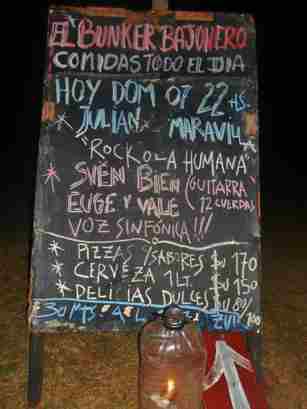 EL BUNKER BAJONERO
COMIDAS TODO EL DIA
HOY DOM 07 22 HS.
JULIAN MARAVIL
"ROCKOLA HUMANA"
SVEN BIEN (GUITARRA
EUGE Y VALE 12 CUERDAS)
VOZ SINFÓNICA!!!
* PIZZAS 4/SABORES $U 170
* CERVEZA 1 LT. $U 150
* DELICIAS DULCES $U 80/100
30 MTS A LA